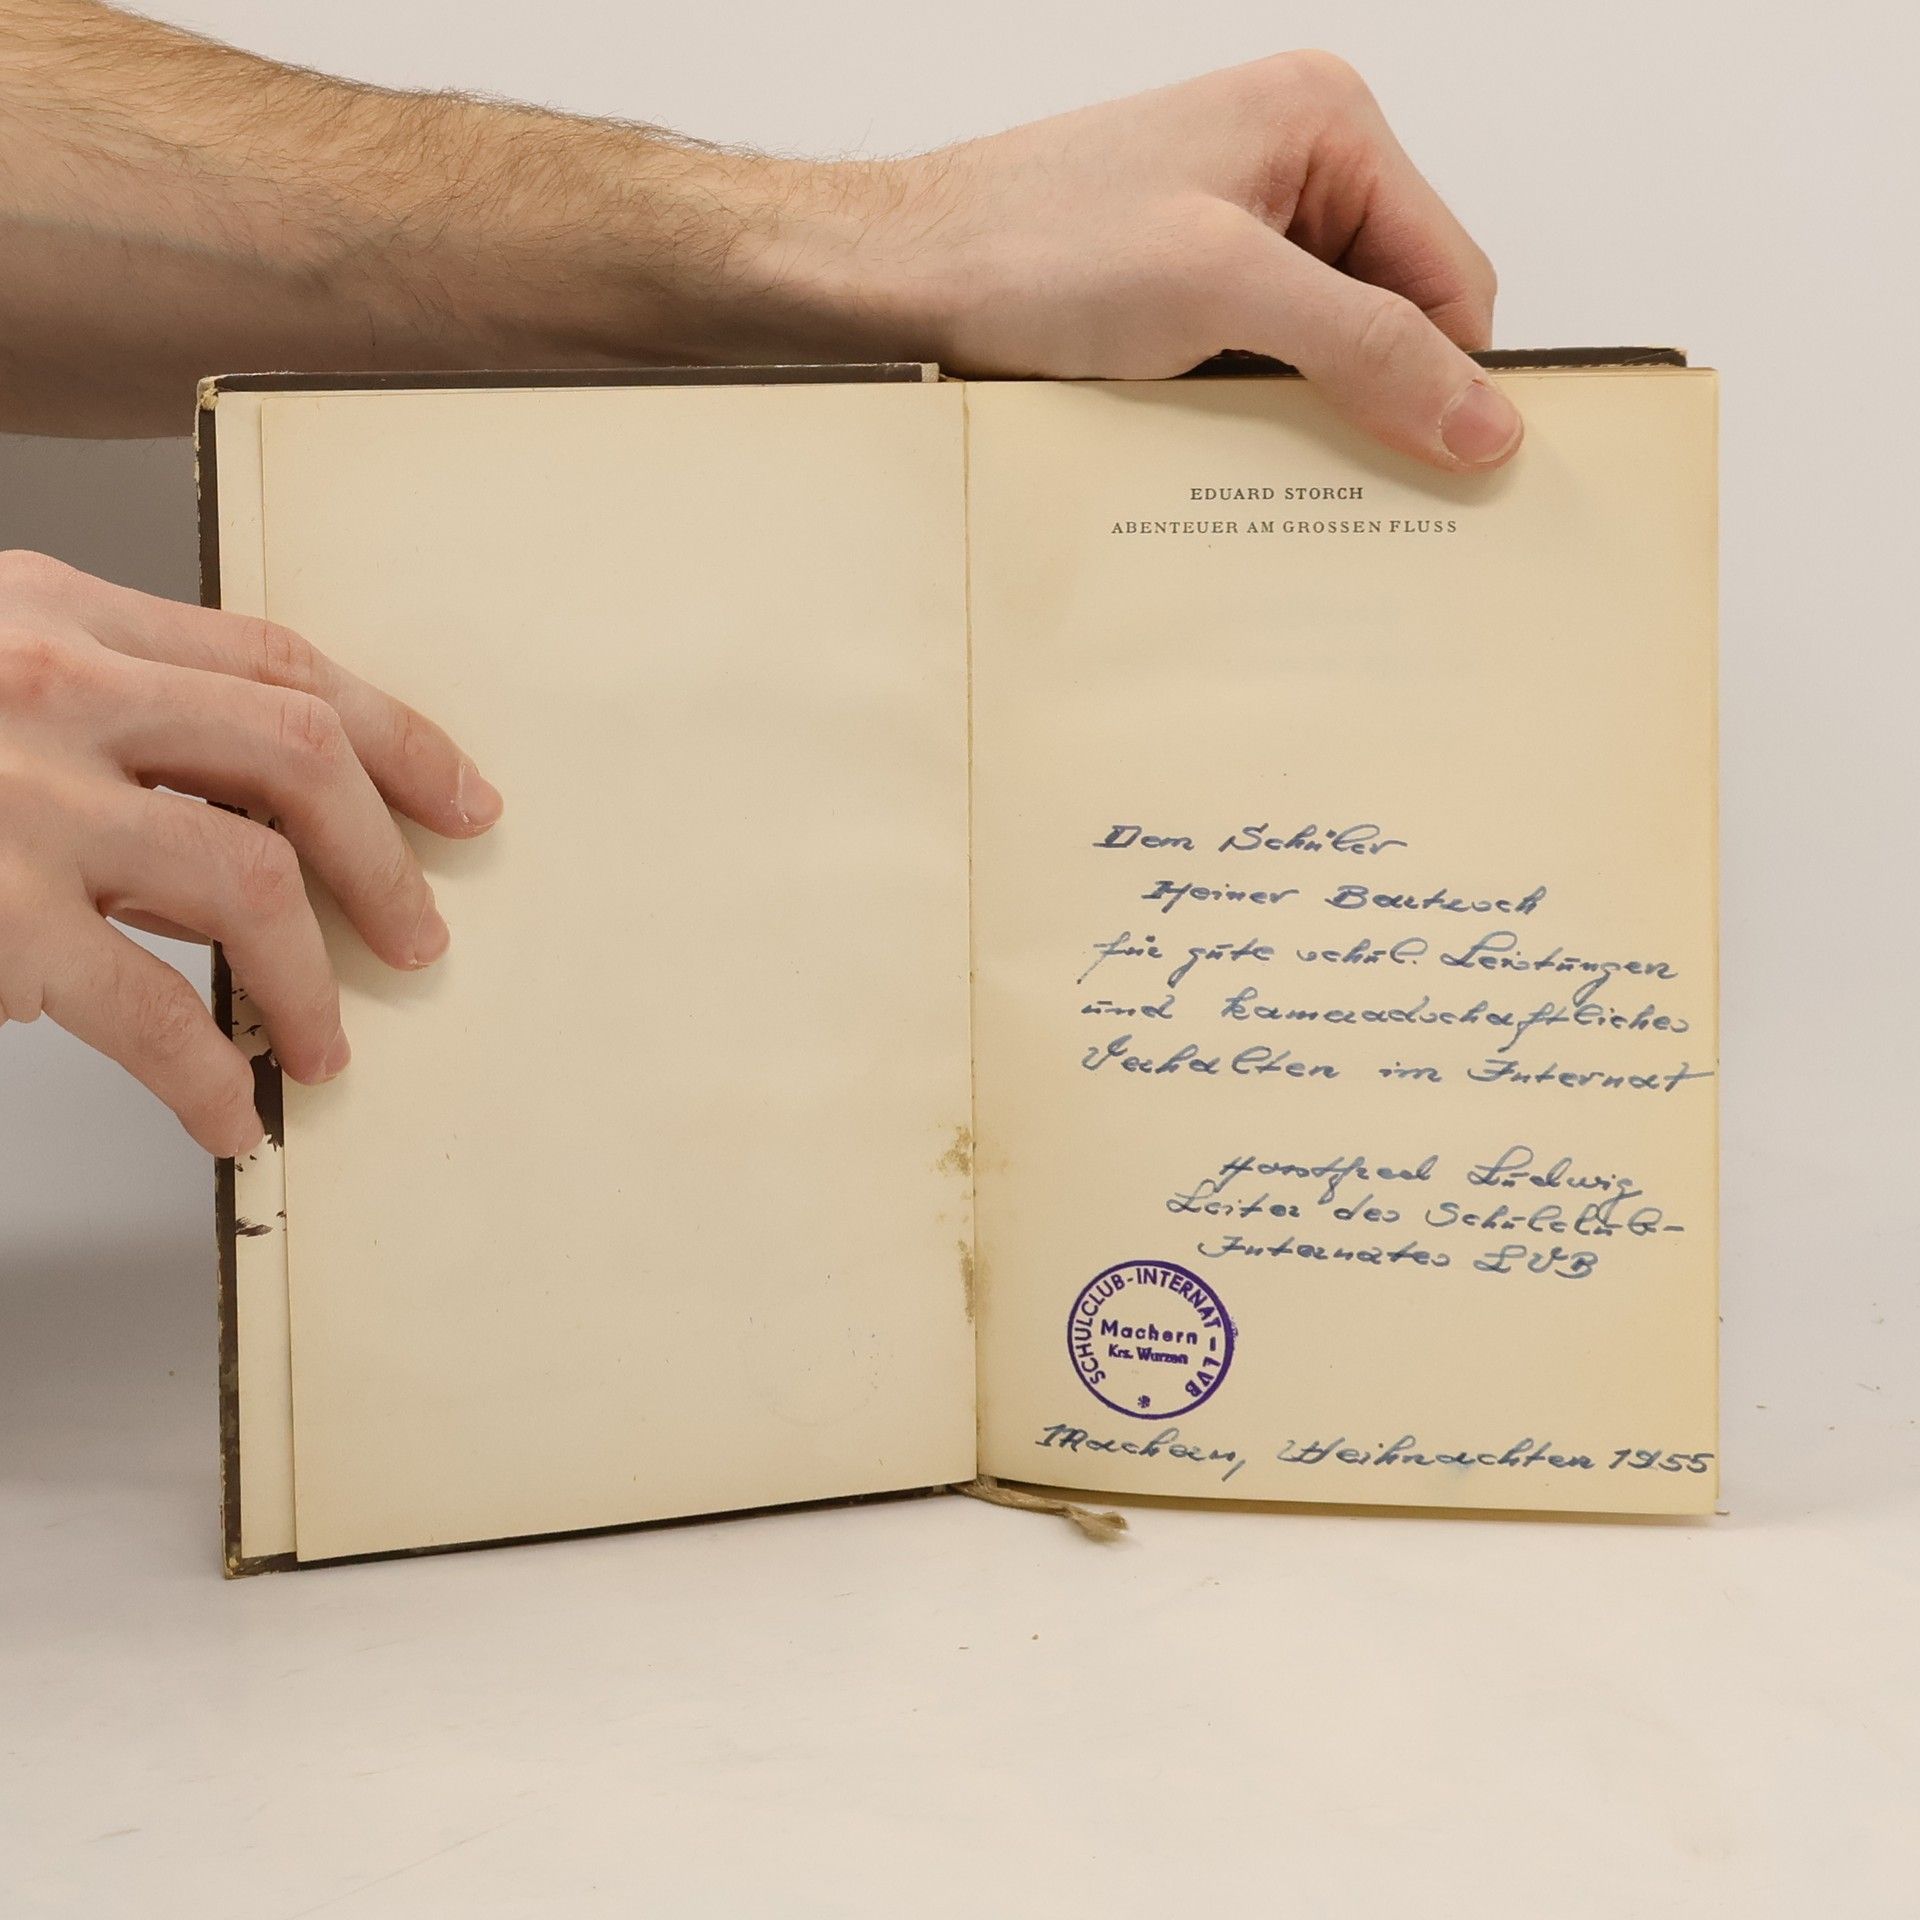 EDUARD STORCH
ABENTEUER AM GROSSEN FLUSS
Dem Schüler
Heiner
für gute schul. Leistungen
und kameradschaftliches
Verhalten im Internat
Horstfred Ludwig
Leiter des Schulclub-
Internates LVB
SCHULCLUB-INTERNAT - LVB
Machern
Krs. Wurzen
*
Machern, Weihnachten 1955